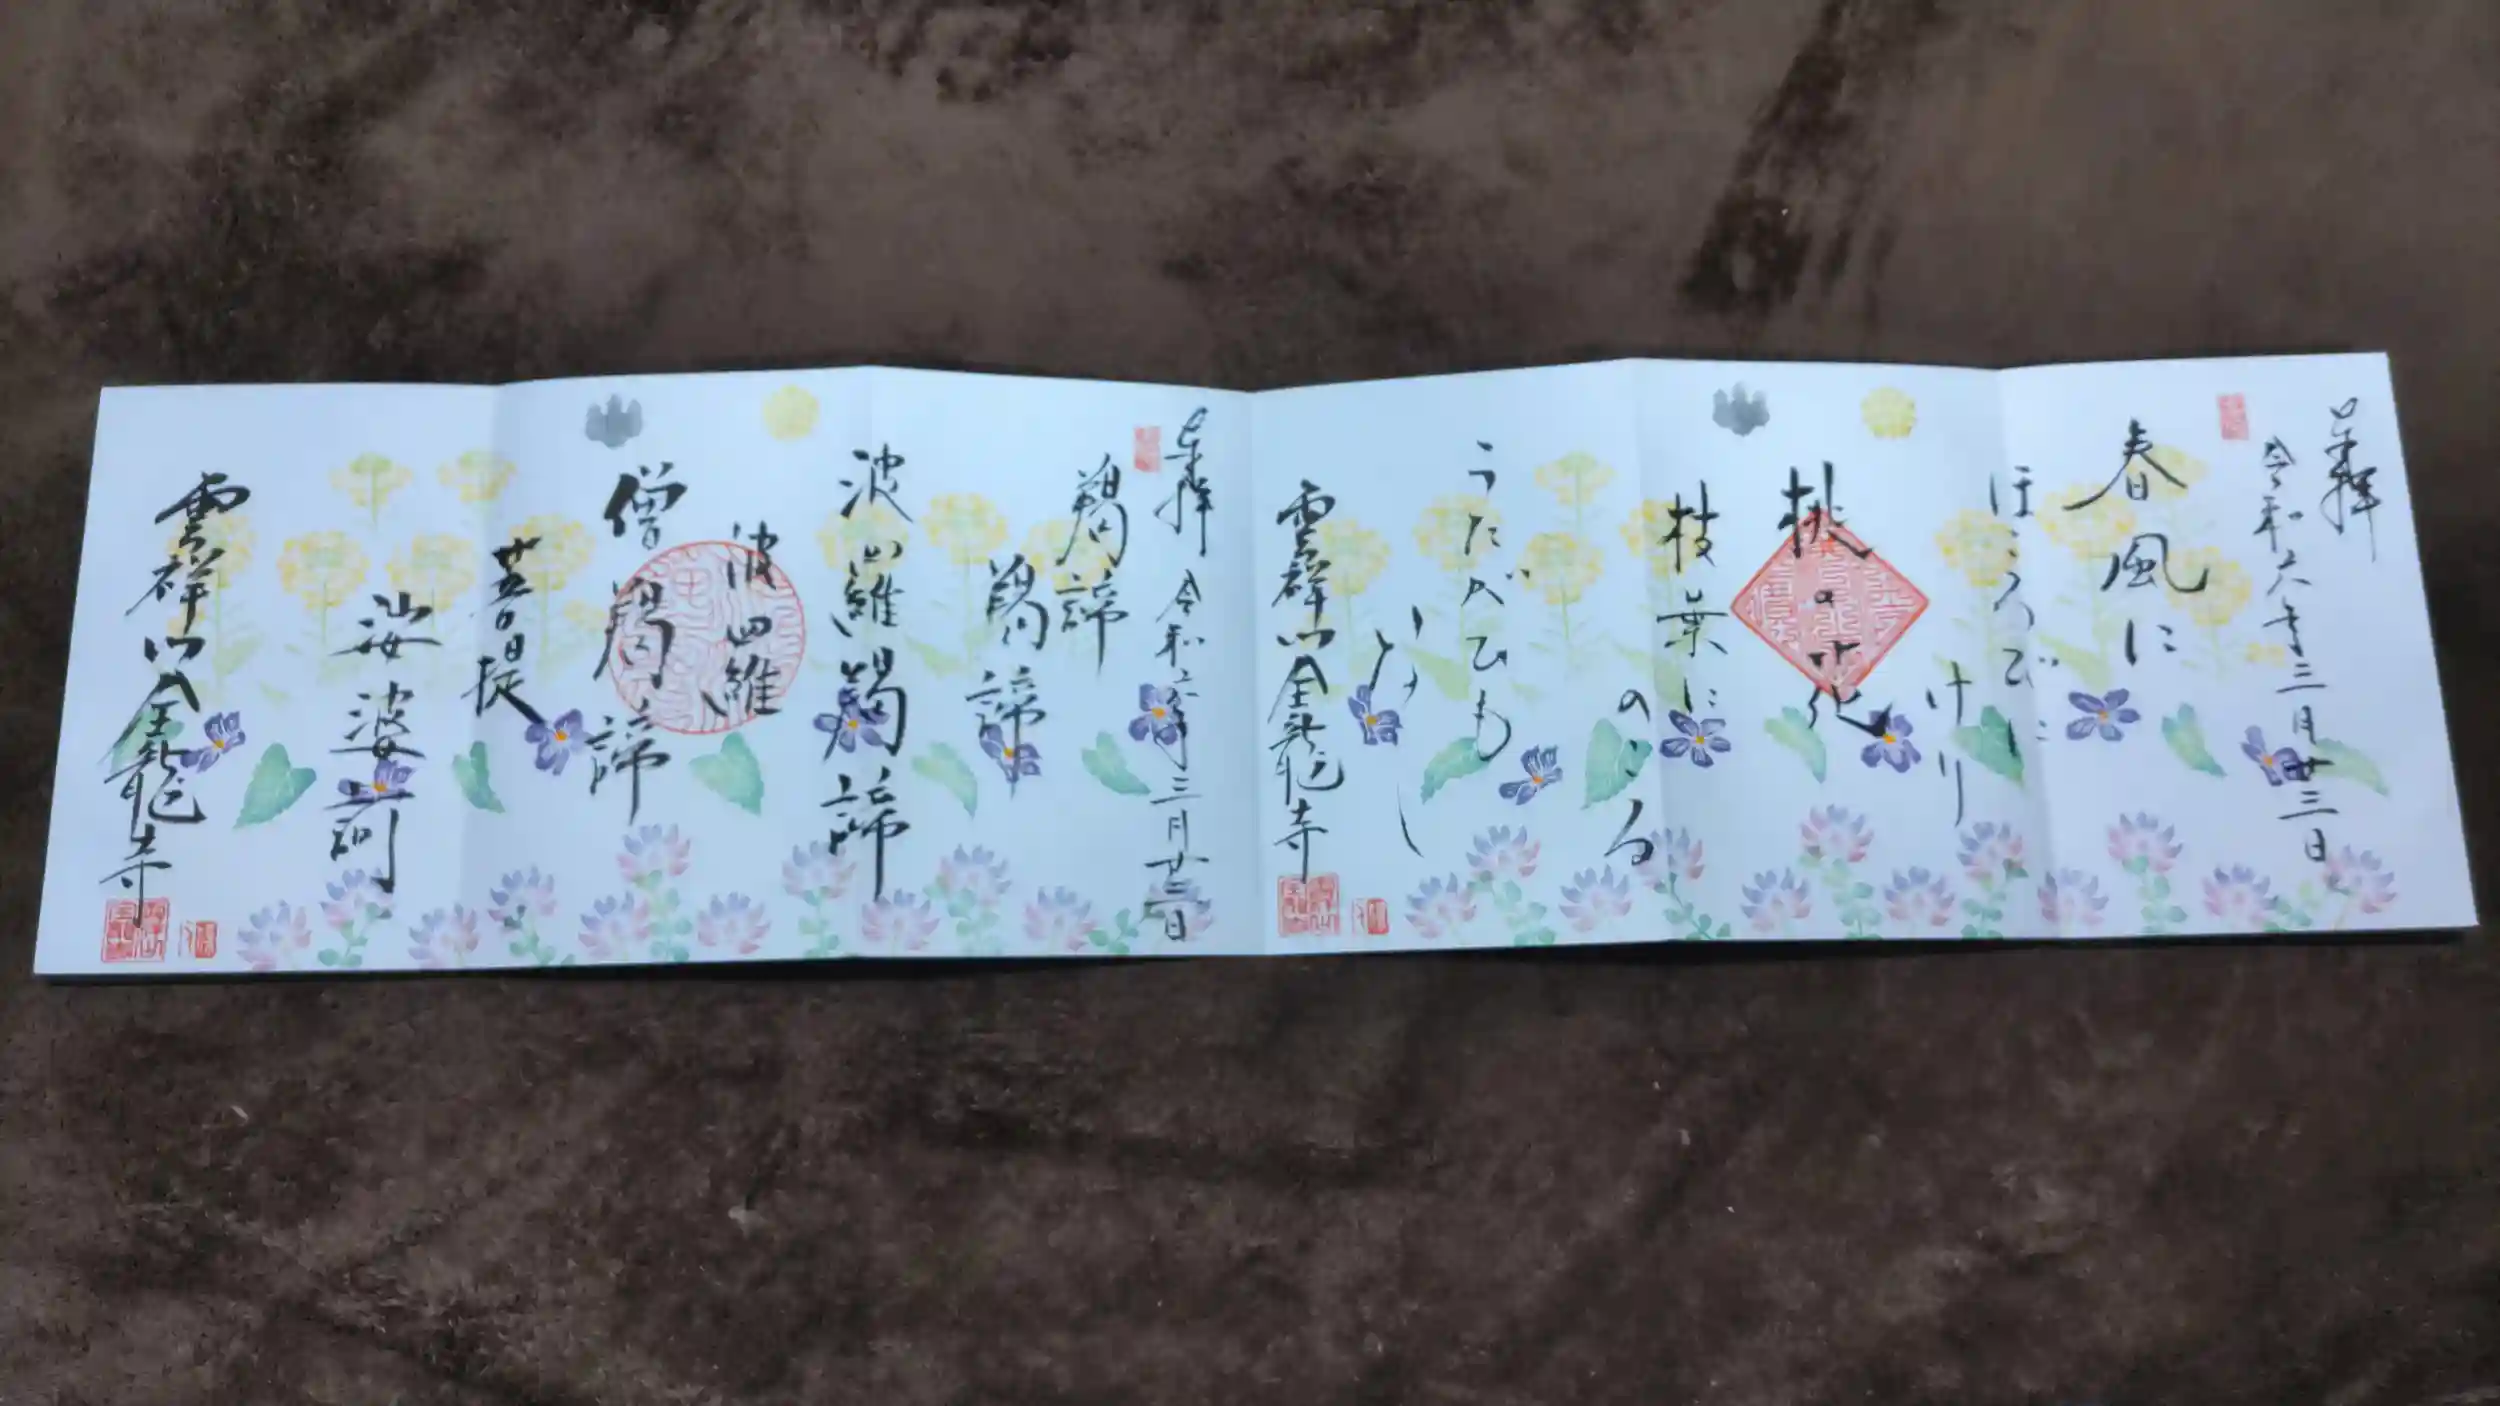 奉拝
令和六年三月廿三日
春風に
ほころびに
けり
桃の花
枝葉に
のこる
うたがひも
なし
雲祥山金龍寺
奉拝
令和六年三月廿三日
羯諦
羯諦
波羅羯諦
波羅
僧羯諦
菩提
娑婆訶
雲祥山金龍寺